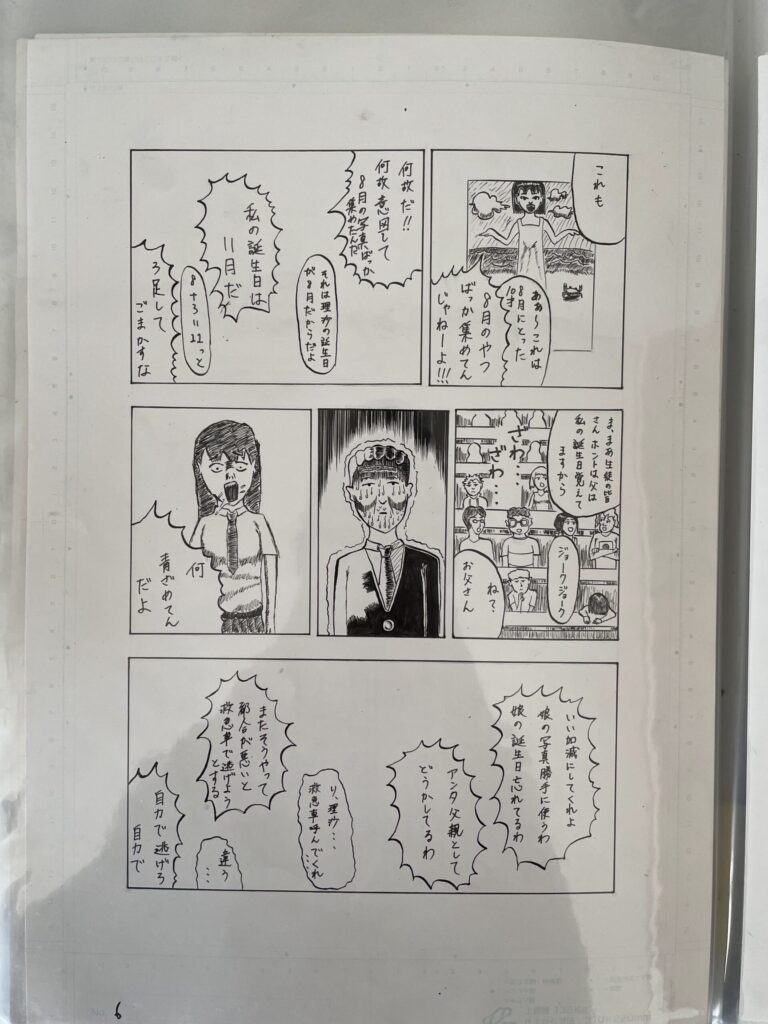 これも
ああ〜これは
8月にとった
10才
8月のやつ
ばっか集めてん
じゃねーよ!!!
何故だ!!
何故意図して
8月の写真ばっか
集めたんだ
それは理沙の誕生日
が8月だからだよ
私の誕生日は
11月だ
3足して
ごまかすな
ま、まあ生徒の皆
さんホントは父は
私の誕生日覚えて
ますから
ざわ…
ざわ…
ジョークジョーク
ねぇ、
お父さん
何
青ざめてん
だよ
いい加減にしてくれよ
娘の写真勝手に使うわ
娘の誕生日忘れてるわ
アンタ父親として
どうかしてるわ
り、理沙…
救急車呼んでくれ…
またそうやって
都合が悪いと
救急車で逃げよう
とする
違う…
自力で逃げろ
自力で
6